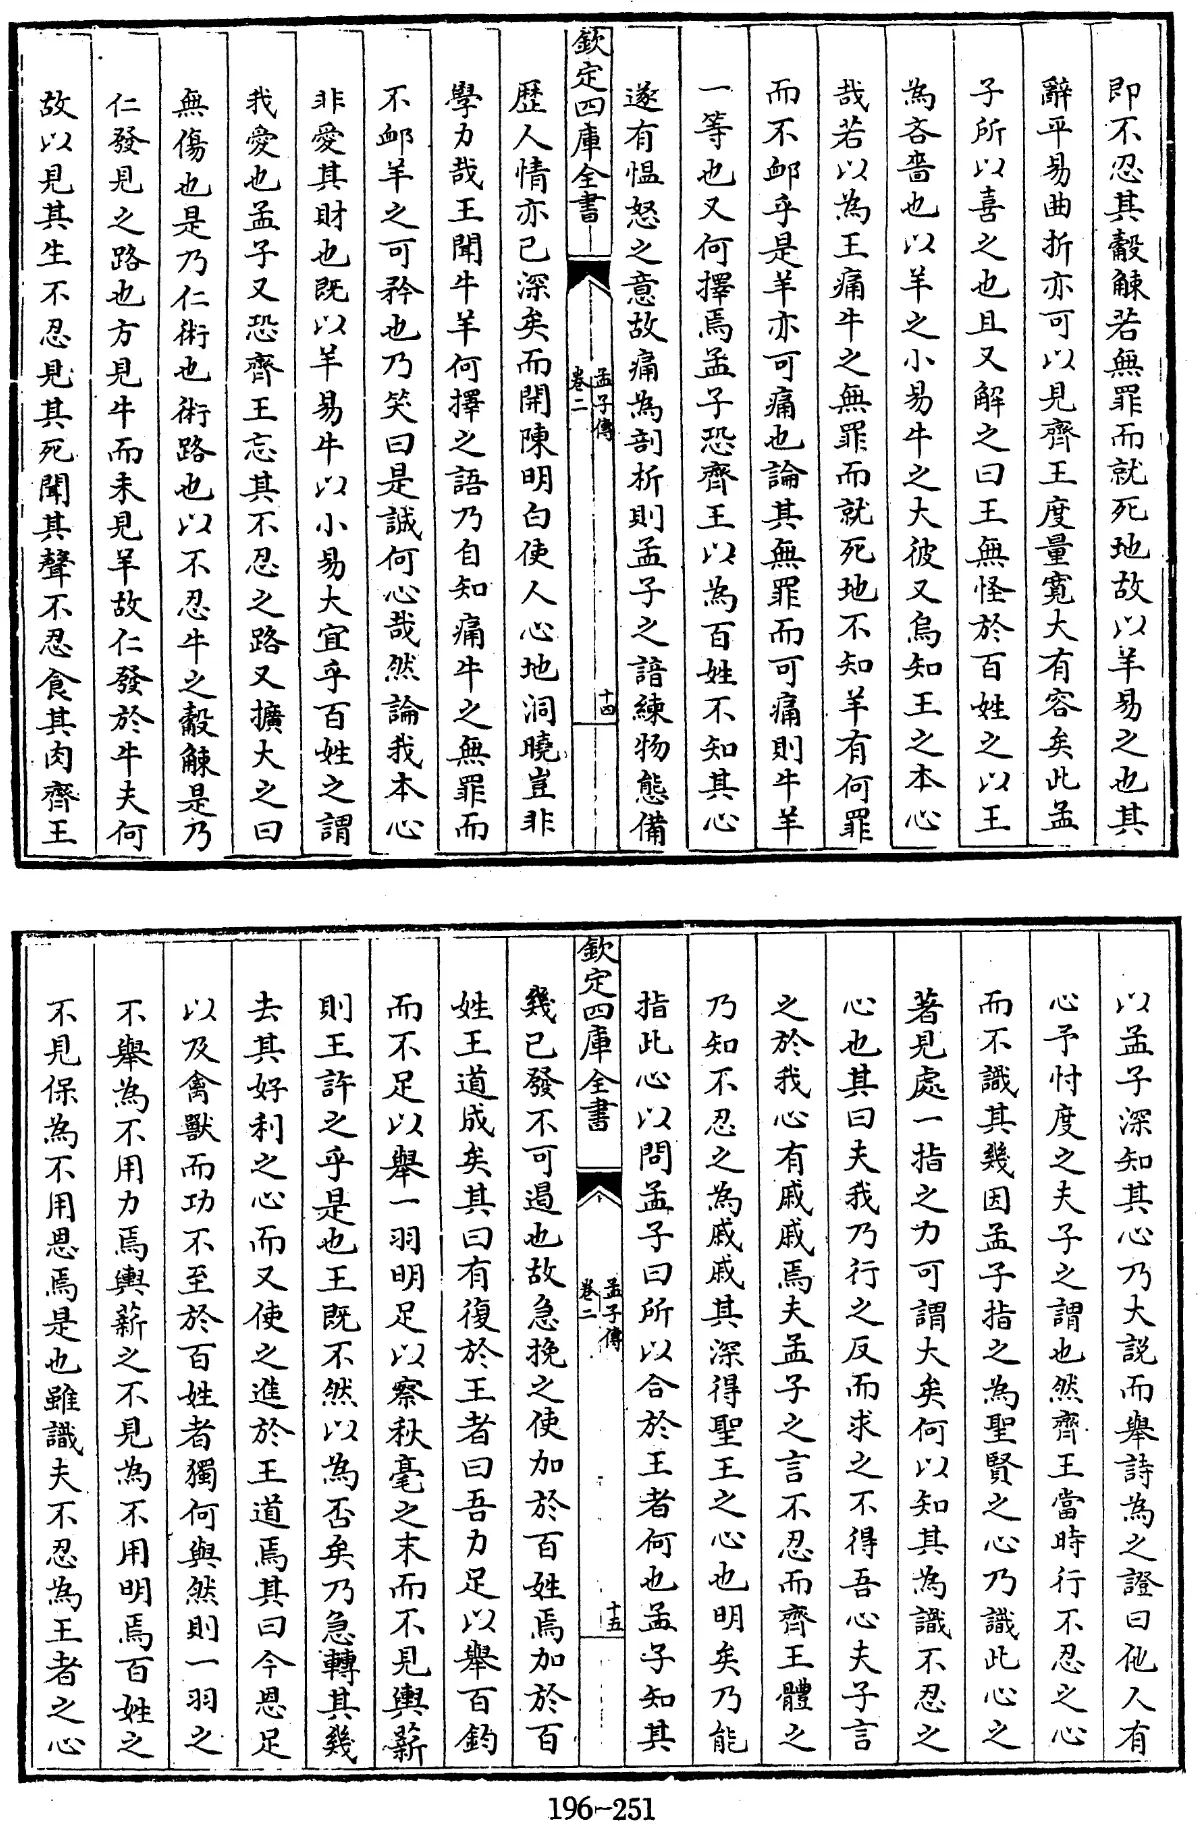 即不忍其觳觫若無罪而就死地故以羊易之也其
辭平易曲折亦可以見齊王度量寛大有容矣此孟
子所以喜之也且又解之曰王無怪於百姓之以王
為吝嗇也以羊之小易牛之大彼又烏知王之本心
哉若以為王痛牛之無罪而就死地不知羊有何罪
而不䘏乎是羊亦可痛也論其無罪而可痛則牛羊
一等也又何擇焉孟子恐齊王以為百姓不知其心
遂有愠怒之意故痛為剖析則孟子之諳練物態備
欽定四庫全書
孟子傳
卷二
十四
歴人情亦已深矣而開陳明白使人心地洞曉豈非
學力哉王聞牛羊何擇之語乃自知痛牛之無罪而
不䘏羊之可矜也乃笑曰是誠何心哉然論我本心
非愛其財也既以羊易牛以小易大宜乎百姓之謂
我愛也孟子又恐齊王忘其不忍之路又擴大之曰
無傷也是乃仁術也術路也以不忍牛之觳觫是乃
仁發見之路也方見牛而未見羊故仁發於牛夫何
故以見其生不忍見其死聞其聲不忍食其肉齊王
以孟子深知其心乃大説而舉詩為之證曰他人有
心予忖度之夫子之謂也然齊王當時行不忍之心
而不識其幾因孟子指之為聖賢之心乃識此心之
著見處一指之力可謂大矣何以知其為識不忍之
心也其曰夫我乃行之反而求之不得吾心夫子言
之於我心有戚戚焉夫孟子之言不忍而齊王體之
乃知不忍之為戚戚其深得聖王之心也明矣乃能
指此心以問孟子曰所以合於王者何也孟子知其
欽定四庫全書
孟子傳
卷二
十五
幾已發不可遏也故急挽之使加於百姓焉加於百
姓王道成矣其曰有復於王者曰吾力足以舉百鈞
而不足以舉一羽明足以察秋毫之末而不見輿薪
則王許之乎是也王既不然以為否矣乃急轉其幾
去其好利之心而又使之進於王道焉其曰今恩足
以及禽獸而功不至於百姓者獨何與然則一羽之
不舉為不用力焉輿薪之不見為不用明焉百姓之
不見保為不用恩焉是也雖識夫不忍為王者之心
196-251